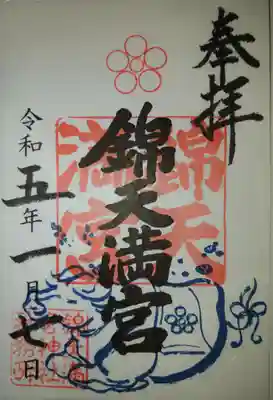 奉拝
錦天満宮
錦天
満宮
令和五年一月七日